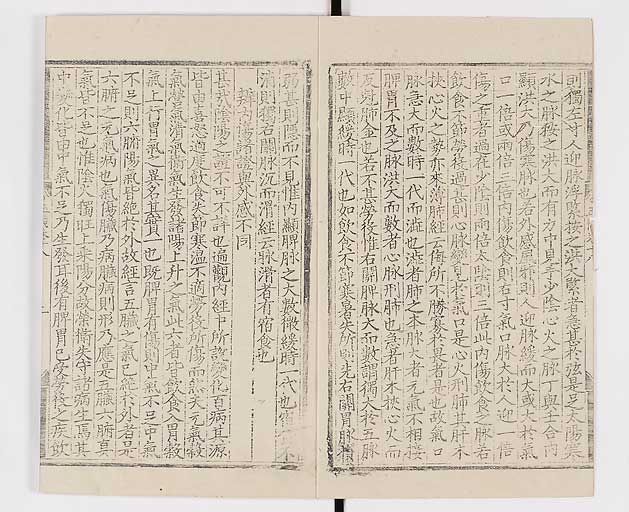 則獨左寸人迎脉浮緊按之洪大緊者急甚於弦是足太陽寒
水之脉按之洪大而有力中見手少陰心火之脉丁與壬合內
顯洪大乃傷寒脉也若外感風邪則人迎脉緩而大或大於氣
口一倍或兩倍三倍內傷飲食則右寸氣口脉大於人迎一倍
傷之重者過在少陰則兩倍太陰則三倍此內傷飲食之脉若
飲食不節勞役過甚則心脉變見於氣口是心火刑肺其肝木
挾心火之勢亦來薄肺經云侮所不勝寡於畏者是也故氣口
脉急大而數時一代而澁也澁者肺之本脉大者元氣不相接
脾胃不及之脉洪大而數者心脉刑肺也急者肝木挾心火而
反尅肺金也若不甚勞役惟右關脾脉大而數謂獨大於五脉
數中顯緩時一代也如飲食不節寒暑失所則先右關胃脉損
弱甚則隱而不見惟內顯脾脉之大數微緩時一代也
消則獨右關脉沉而滑經云脉滑者有宿食也
辨內傷諸證與外感不同
甚哉陰陽之證不可不詳也遍觀內經中所說變化百病其源
皆由喜怒過度飲食失節寒溫不適勞役所傷而然夫元氣穀
氣營氣清氣衛氣生發諸陽上升之氣此六者皆飲食入胃穀
氣上行胃氣之異名其實一也既脾胃有傷則中氣不足中氣
不足則六腑陽氣皆絕於外故經言五臟之氣已絕於外者是
六腑之元氣病也氣傷臟乃病臟病則形乃應是五臟六腑真
氣皆不足也惟陰火獨旺上乘陽分故榮衛失守諸病生焉其
中變化皆由中氣不足乃生發耳後有脾胃已受勞役之疾飲